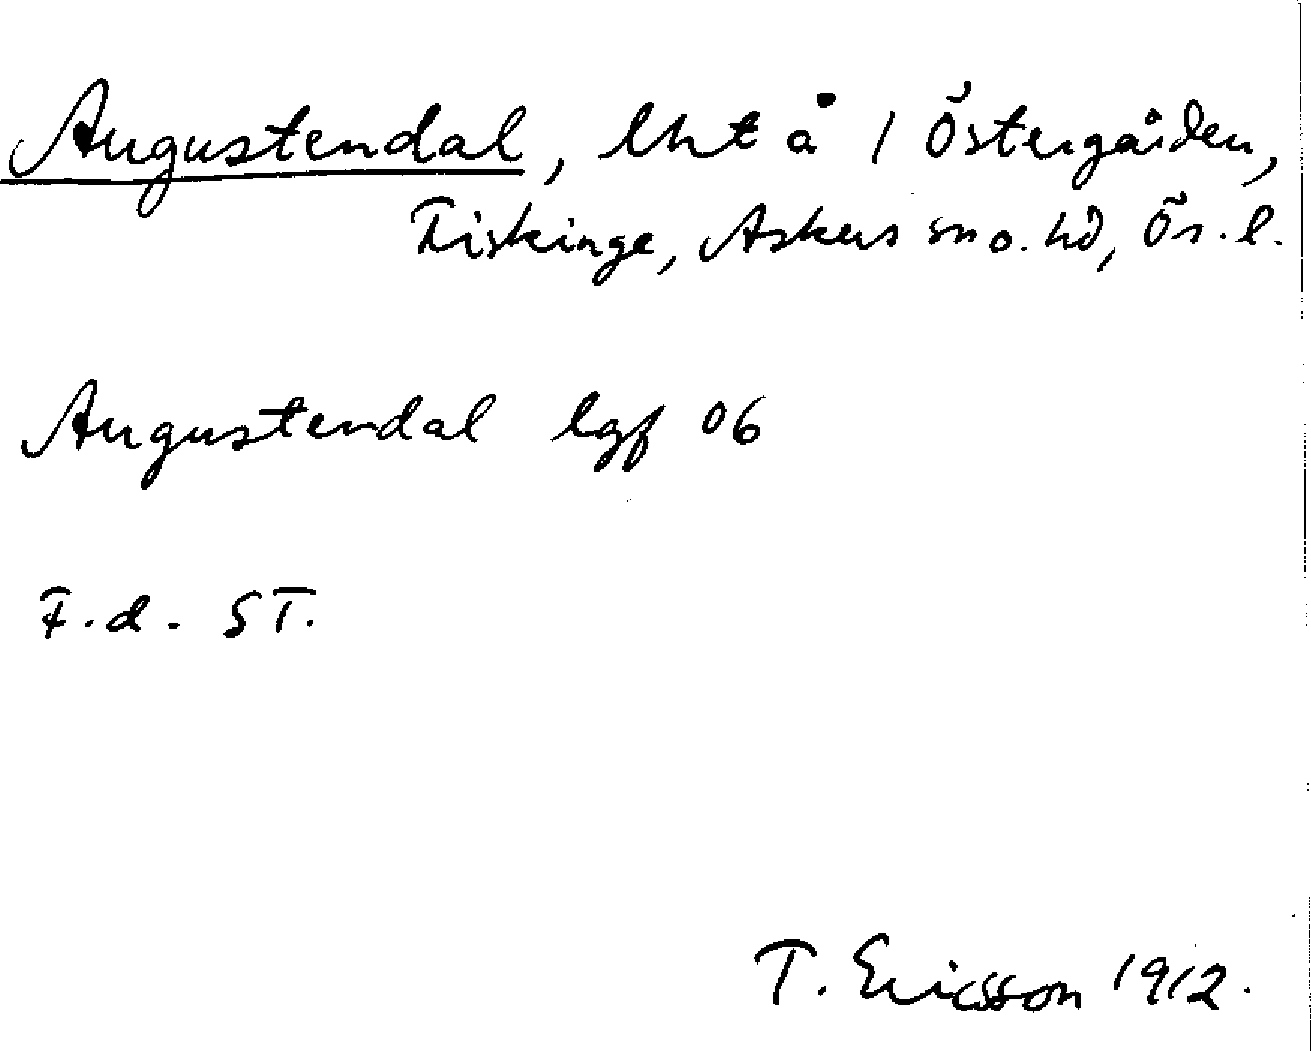 Augustendal, lht å 1 Östergården,
Fiskinge, Askers sn o. hd, Ör. l.
Augustendal lgf 06
F.d. ST.
T. Ericsson 1912.